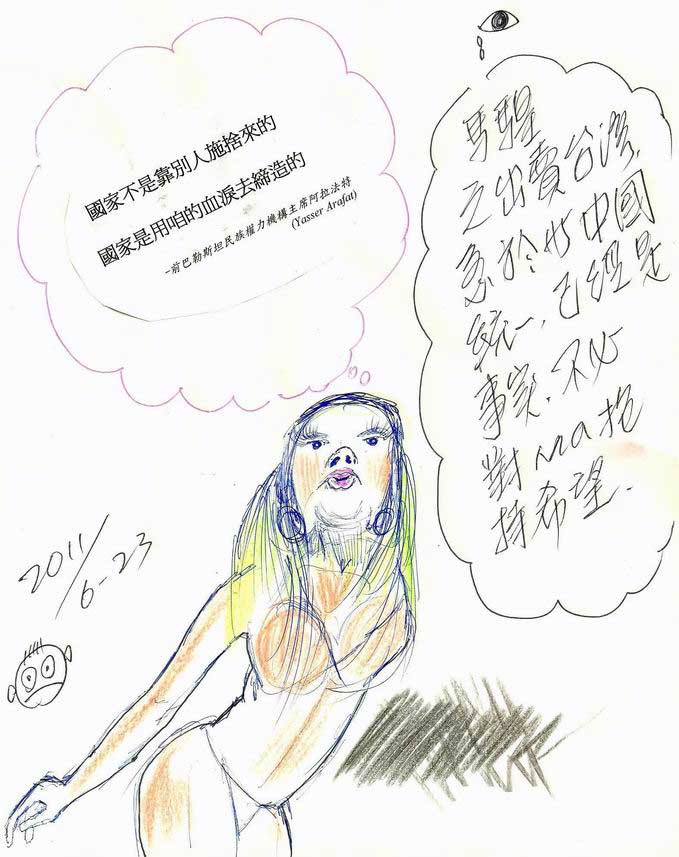 國家不是靠別人施捨來的
國家是用咱的血淚去締造的
-前巴勒斯坦民族權力機構主席阿拉法特
(Yasser Arafat)
馬騜
之出賣台灣,
急於与中國
統一,已經是
事實,不必
對ma抱
持希望.
2011/
6-23